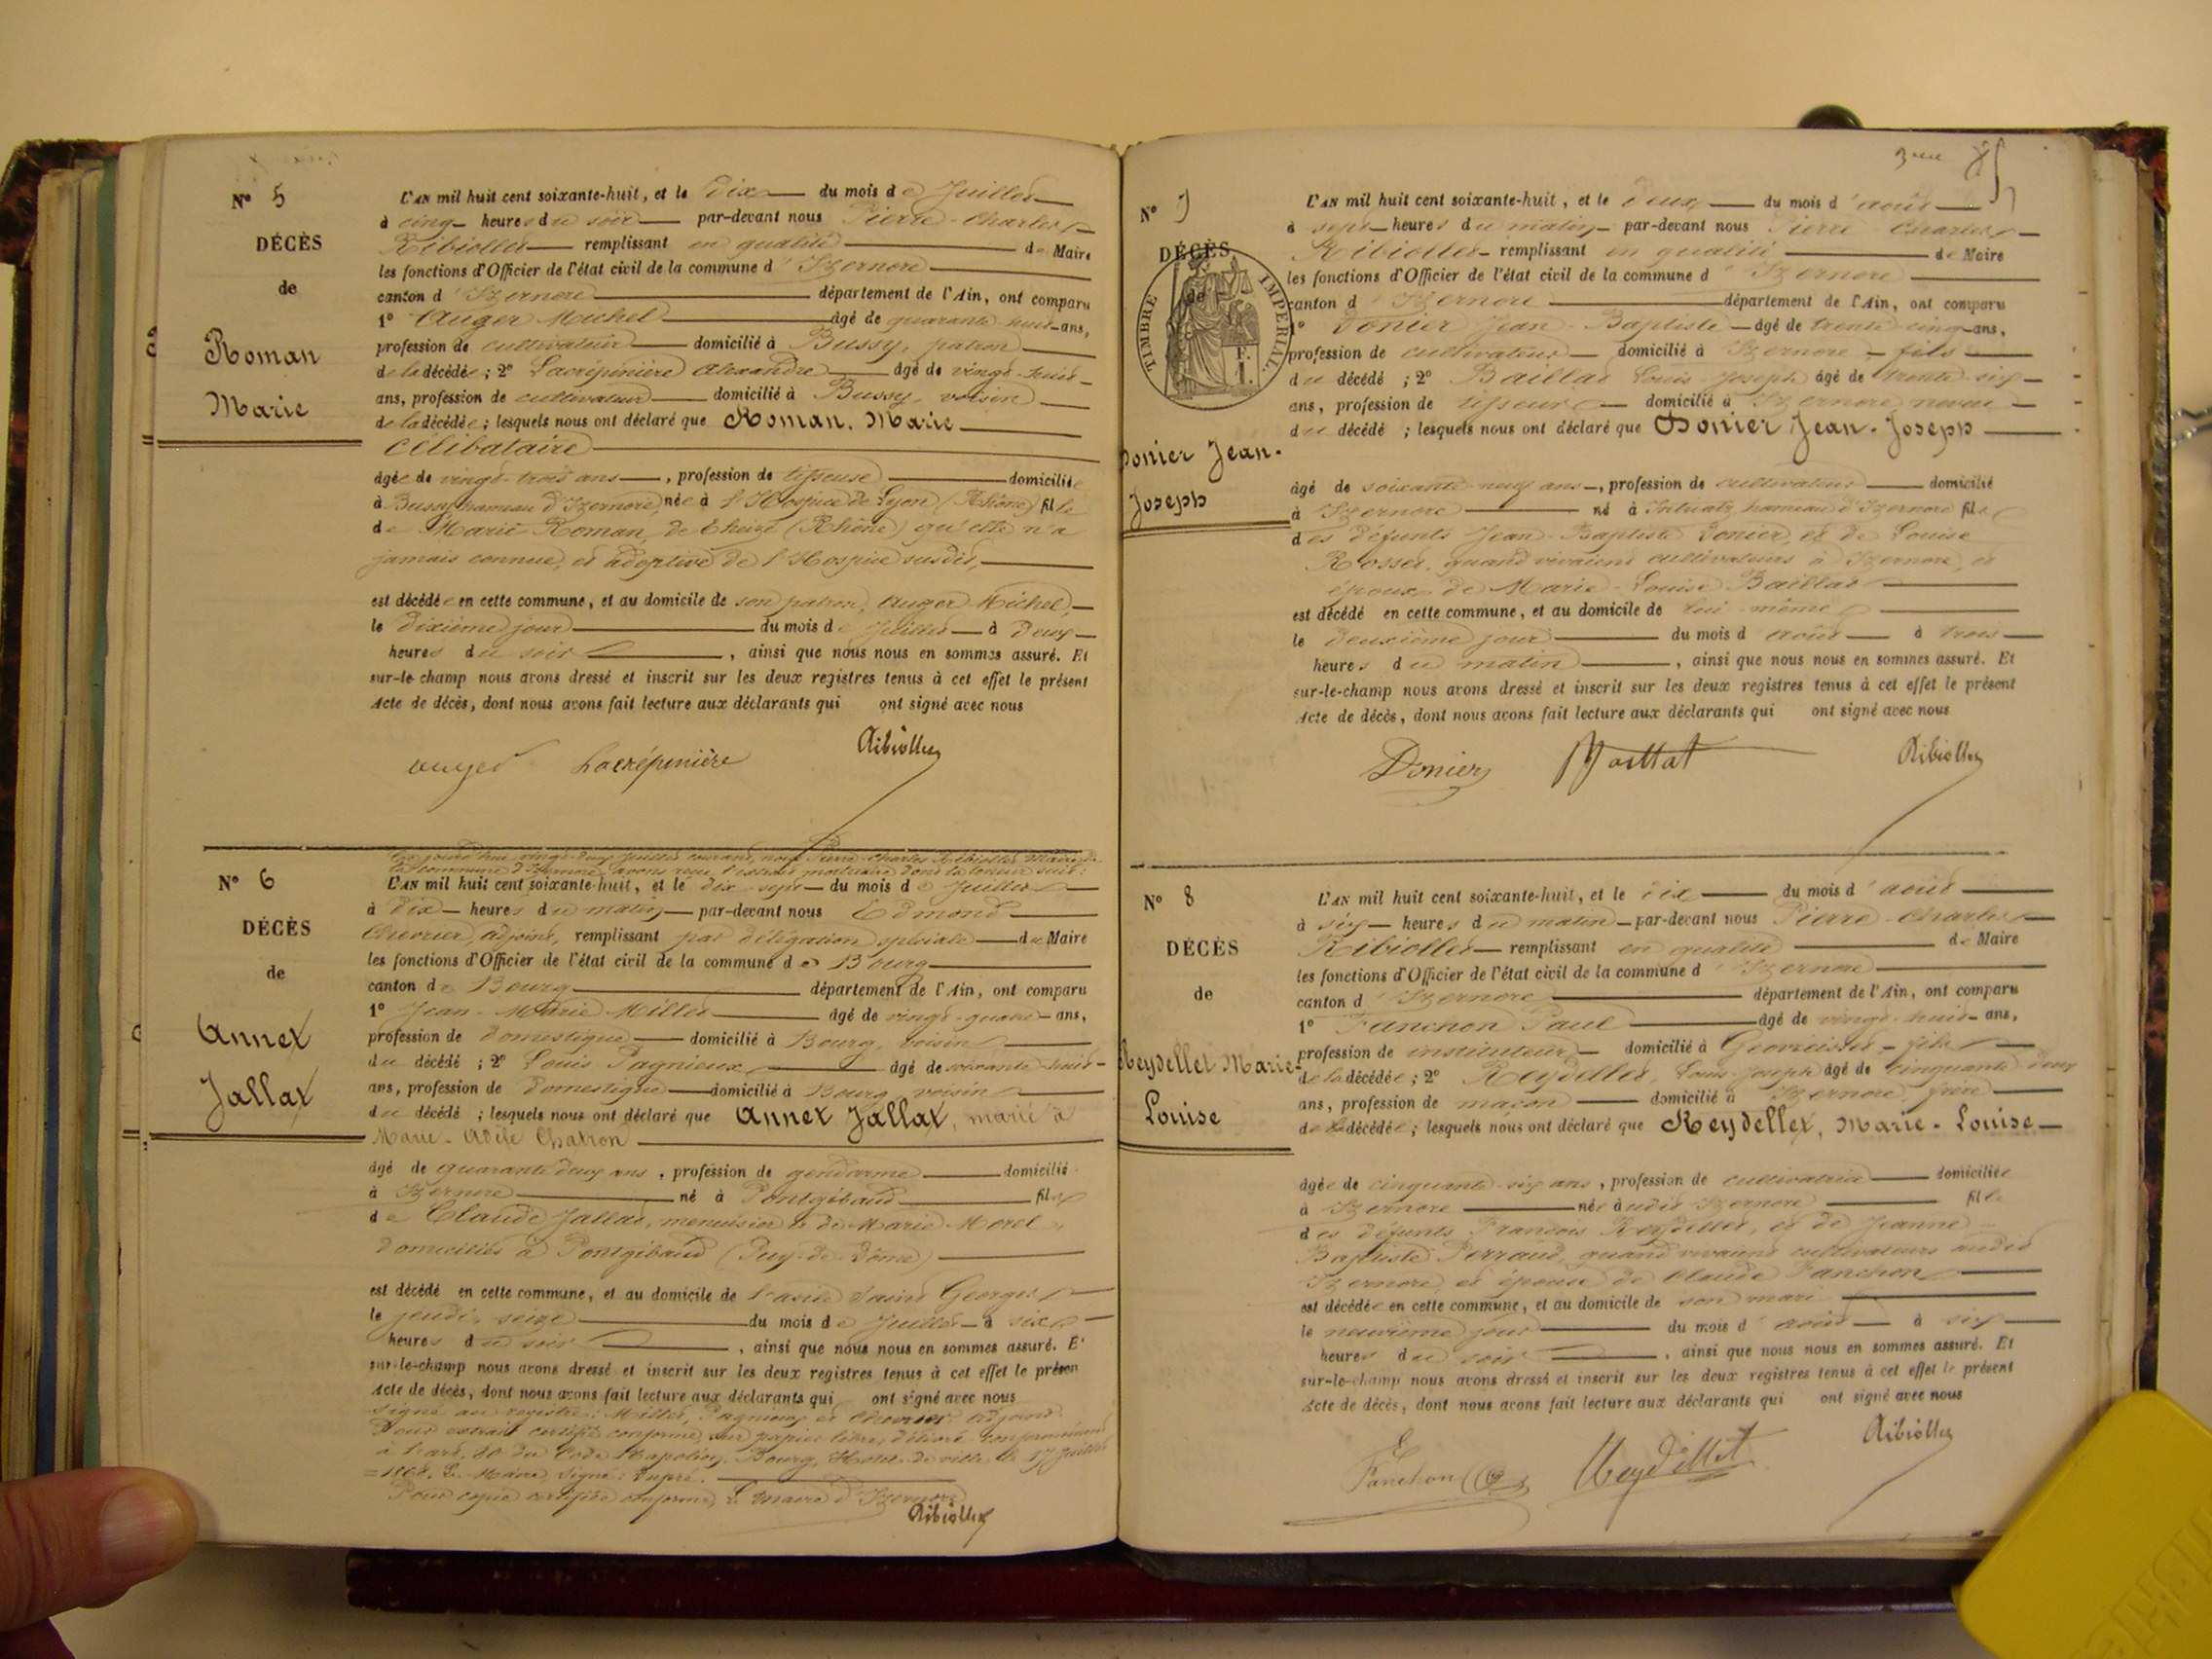 N° 5
DÉCÈS
de
Roman
Marie
L'AN mil huit cent soixante-huit, et le dix du mois de Juillet
à cinq heures du soir par-devant nous Pierre-Charles
Ribiollet remplissant en qualité de Maire
les fonctions d'Officier de l'état civil de la commune d'Izernore
canton d'Izernore département de l'Ain, ont comparu
1° Auger Michel âgé de quarante-huit ans,
profession de cultivateur domicilié à Bussy, patron
de la décédée; 2° Lacrépinière Alexandre âgé de vingt-huit
ans, profession de cultivateur domicilié à Bussy, voisin
de la décédée; lesquels nous ont déclaré que Roman, Marie
célibataire
âgée de vingt-trois ans, profession de tisseuse domiciliée
à Bussy hameau d'Izernore, née à l'Hospice de Lyon (Rhône) fille
de Marie Roman, de (Rhône) qu'elle n'a
jamais connue, et adoptive de l'Hospice susdit,
est décédée en cette commune, et au domicile de son patron, Auger Michel,
le dixième jour du mois de Juillet à deux
heures du soir, ainsi que nous nous en sommes assuré. Et
sur-le-champ nous avons dressé et inscrit sur les deux registres tenus à cet effet le présent
Acte de décès, dont nous avons fait lecture aux déclarants qui ont signé avec nous
auger Lacrépinière Ribiollet
N° 6
DÉCÈS
de
Annet
Jallat
Ce jourd'hui vingt-deux Juillet courant, nous Pierre-Charles Ribiollet Maire de
la commune d'Izernore, avons reçu l'extrait mortuaire dont la teneur suit:
L'AN mil huit cent soixante-huit, et le dix-sept du mois de Juillet
à dix heures du matin par-devant nous Edmond
Chevrier, adjoint, remplissant par délégation spéciale du Maire
les fonctions d'Officier de l'état civil de la commune de Bourg
canton de Bourg département de l'Ain, ont comparu
1° Jean-Marie Millet âgé de vingt-quatre ans,
profession de domestique domicilié à Bourg, voisin
du décédé; 2° Louis Pagnieux âgé de soixante-huit
ans, profession de domestique domicilié à Bourg voisin
du décédé; lesquels nous ont déclaré que Annet Jallat, marié à
Marie-Adèle Chatron
âgé de quarante deux ans, profession de gendarme domicilié
à Izernore né à Pontgibaud fils
de Claude Jallat, menuisier et de Marie Morel,
domiciliés à Pontgibaud (Puy-de-Dôme)
est décédé en cette commune, et au domicile de l'asile Saint Georges
le jeudi, seize du mois de Juillet à six
heures du soir, ainsi que nous nous en sommes assuré. Et
sur-le-champ nous avons dressé et inscrit sur les deux registres tenus à cet effet le présent
Acte de décès, dont nous avons fait lecture aux déclarants qui ont signé avec nous
Signé au registre: Millet, Pagnieux et Chevrier adjoint.
Pour extrait certifié conforme, sur papier libre, délivré conformément
à l'art. 80 du Code Napoléon, Bourg, Hôtel de ville, le 17 Juillet
1868. Le Maire Signé:
Pour copie certifiée conforme, Le Maire d'Izernore
Ribiollet
3me 85
N° 7
DÉCÈS
de
TIMBRE IMPERIAL
F.
1.
Donier Jean-
Joseph
L'AN mil huit cent soixante-huit, et le deux du mois d'août
à sept heures du matin par-devant nous Pierre-Charles
Ribiollet remplissant en qualité de Maire
les fonctions d'Officier de l'état civil de la commune d'Izernore
canton d'Izernore département de l'Ain, ont comparu
1° Donier Jean-Baptiste âgé de trente cinq ans,
profession de cultivateur domicilié à Izernore fils
du décédé; 2° Baillat Louis-Joseph âgé de trente-six
ans, profession de tisseur domicilié à Izernore neveu
du décédé; lesquels nous ont déclaré que Donier Jean-Joseph
âgé de soixante-neuf ans, profession de cultivateur domicilié
à Izernore né à hameau d'Izernore fils
des défunts Jean-Baptiste Donier, et de Louise
Rosset, quand vivaient cultivateurs à Izernore, et
époux de Marie-Louise Baillat
est décédé en cette commune, et au domicile de lui-même
le deuxième jour du mois d'août à trois
heures du matin, ainsi que nous nous en sommes assuré. Et
sur-le-champ nous avons dressé et inscrit sur les deux registres tenus à cet effet le présent
Acte de décès, dont nous avons fait lecture aux déclarants qui ont signé avec nous
Donier Baillat Ribiollet
N° 8
DÉCÈS
de
Reydellet Marie-
Louise
L'AN mil huit cent soixante-huit, et le dix du mois d'août
à six heures du matin par-devant nous Pierre-Charles
Ribiollet remplissant en qualité de Maire
les fonctions d'Officier de l'état civil de la commune d'Izernore
canton d'Izernore département de l'Ain, ont comparu
1° Fanchon Paul âgé de vingt-huit ans,
profession de instituteur domicilié à Geovreisset fils
de la décédée; 2° Reydellet, Louis-Joseph âgé de cinquante-deux
ans, profession de maçon domicilié à Izernore, frère
de la décédée; lesquels nous ont déclaré que Reydellet, Marie-Louise
âgée de cinquante-six ans, profession de cultivatrice domiciliée
à Izernore née audit Izernore fille
des défunts François Reydellet, et de Jeanne-
Baptiste Perraud, quand vivaient cultivateurs audit
Izernore, et épouse de Claude Fanchon
est décédée en cette commune, et au domicile de son mari
le neuvième jour du mois d'août à six
heures du soir, ainsi que nous nous en sommes assuré. Et
sur-le-champ nous avons dressé et inscrit sur les deux registres tenus à cet effet le présent
Acte de décès, dont nous avons fait lecture aux déclarants qui ont signé avec nous
Fanchon Reydellet Ribiollet